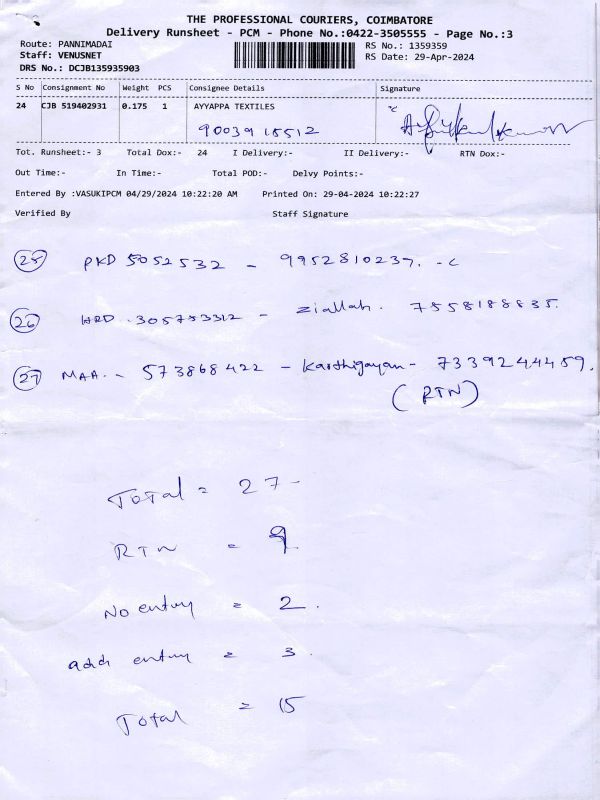 THE PROFESSIONAL COURIERS, COIMBATORE
Delivery Runsheet - PCM - Phone No.:0422-3505555 - Page No.:3
Route: PANNIMADAI RS No.: 1359359
Staff: VENUSNET RS Date: 29-Apr-2024
DRS No.: DCJB135935903
S No Consignment No Weight PCS Consignee Details Signature
24 CJB 519402931 0.175 1 AYYAPPA TEXTILES
9003915512
Tot. Runsheet:- 3 Total Dox:- 24 I Delivery:- II Delivery:- RTN Dox:-
Out Time:- In Time:- Total POD:- Delvy Points:-
Entered By :VASUKIPCM 04/29/2024 10:22:20 AM Printed On: 29-04-2024 10:22:27
Verified By Staff Signature
25 PKD 5052532 - 9952810237. -c
26 HRD .305753312 - Ziallah. 7558188835.
27 MAA. - 573868422 - Karthigayan - 7339244459.
(RTN)
Total = 27 -
RTN = 9
No entry = 2.
addi entry = 3.
Total = 15